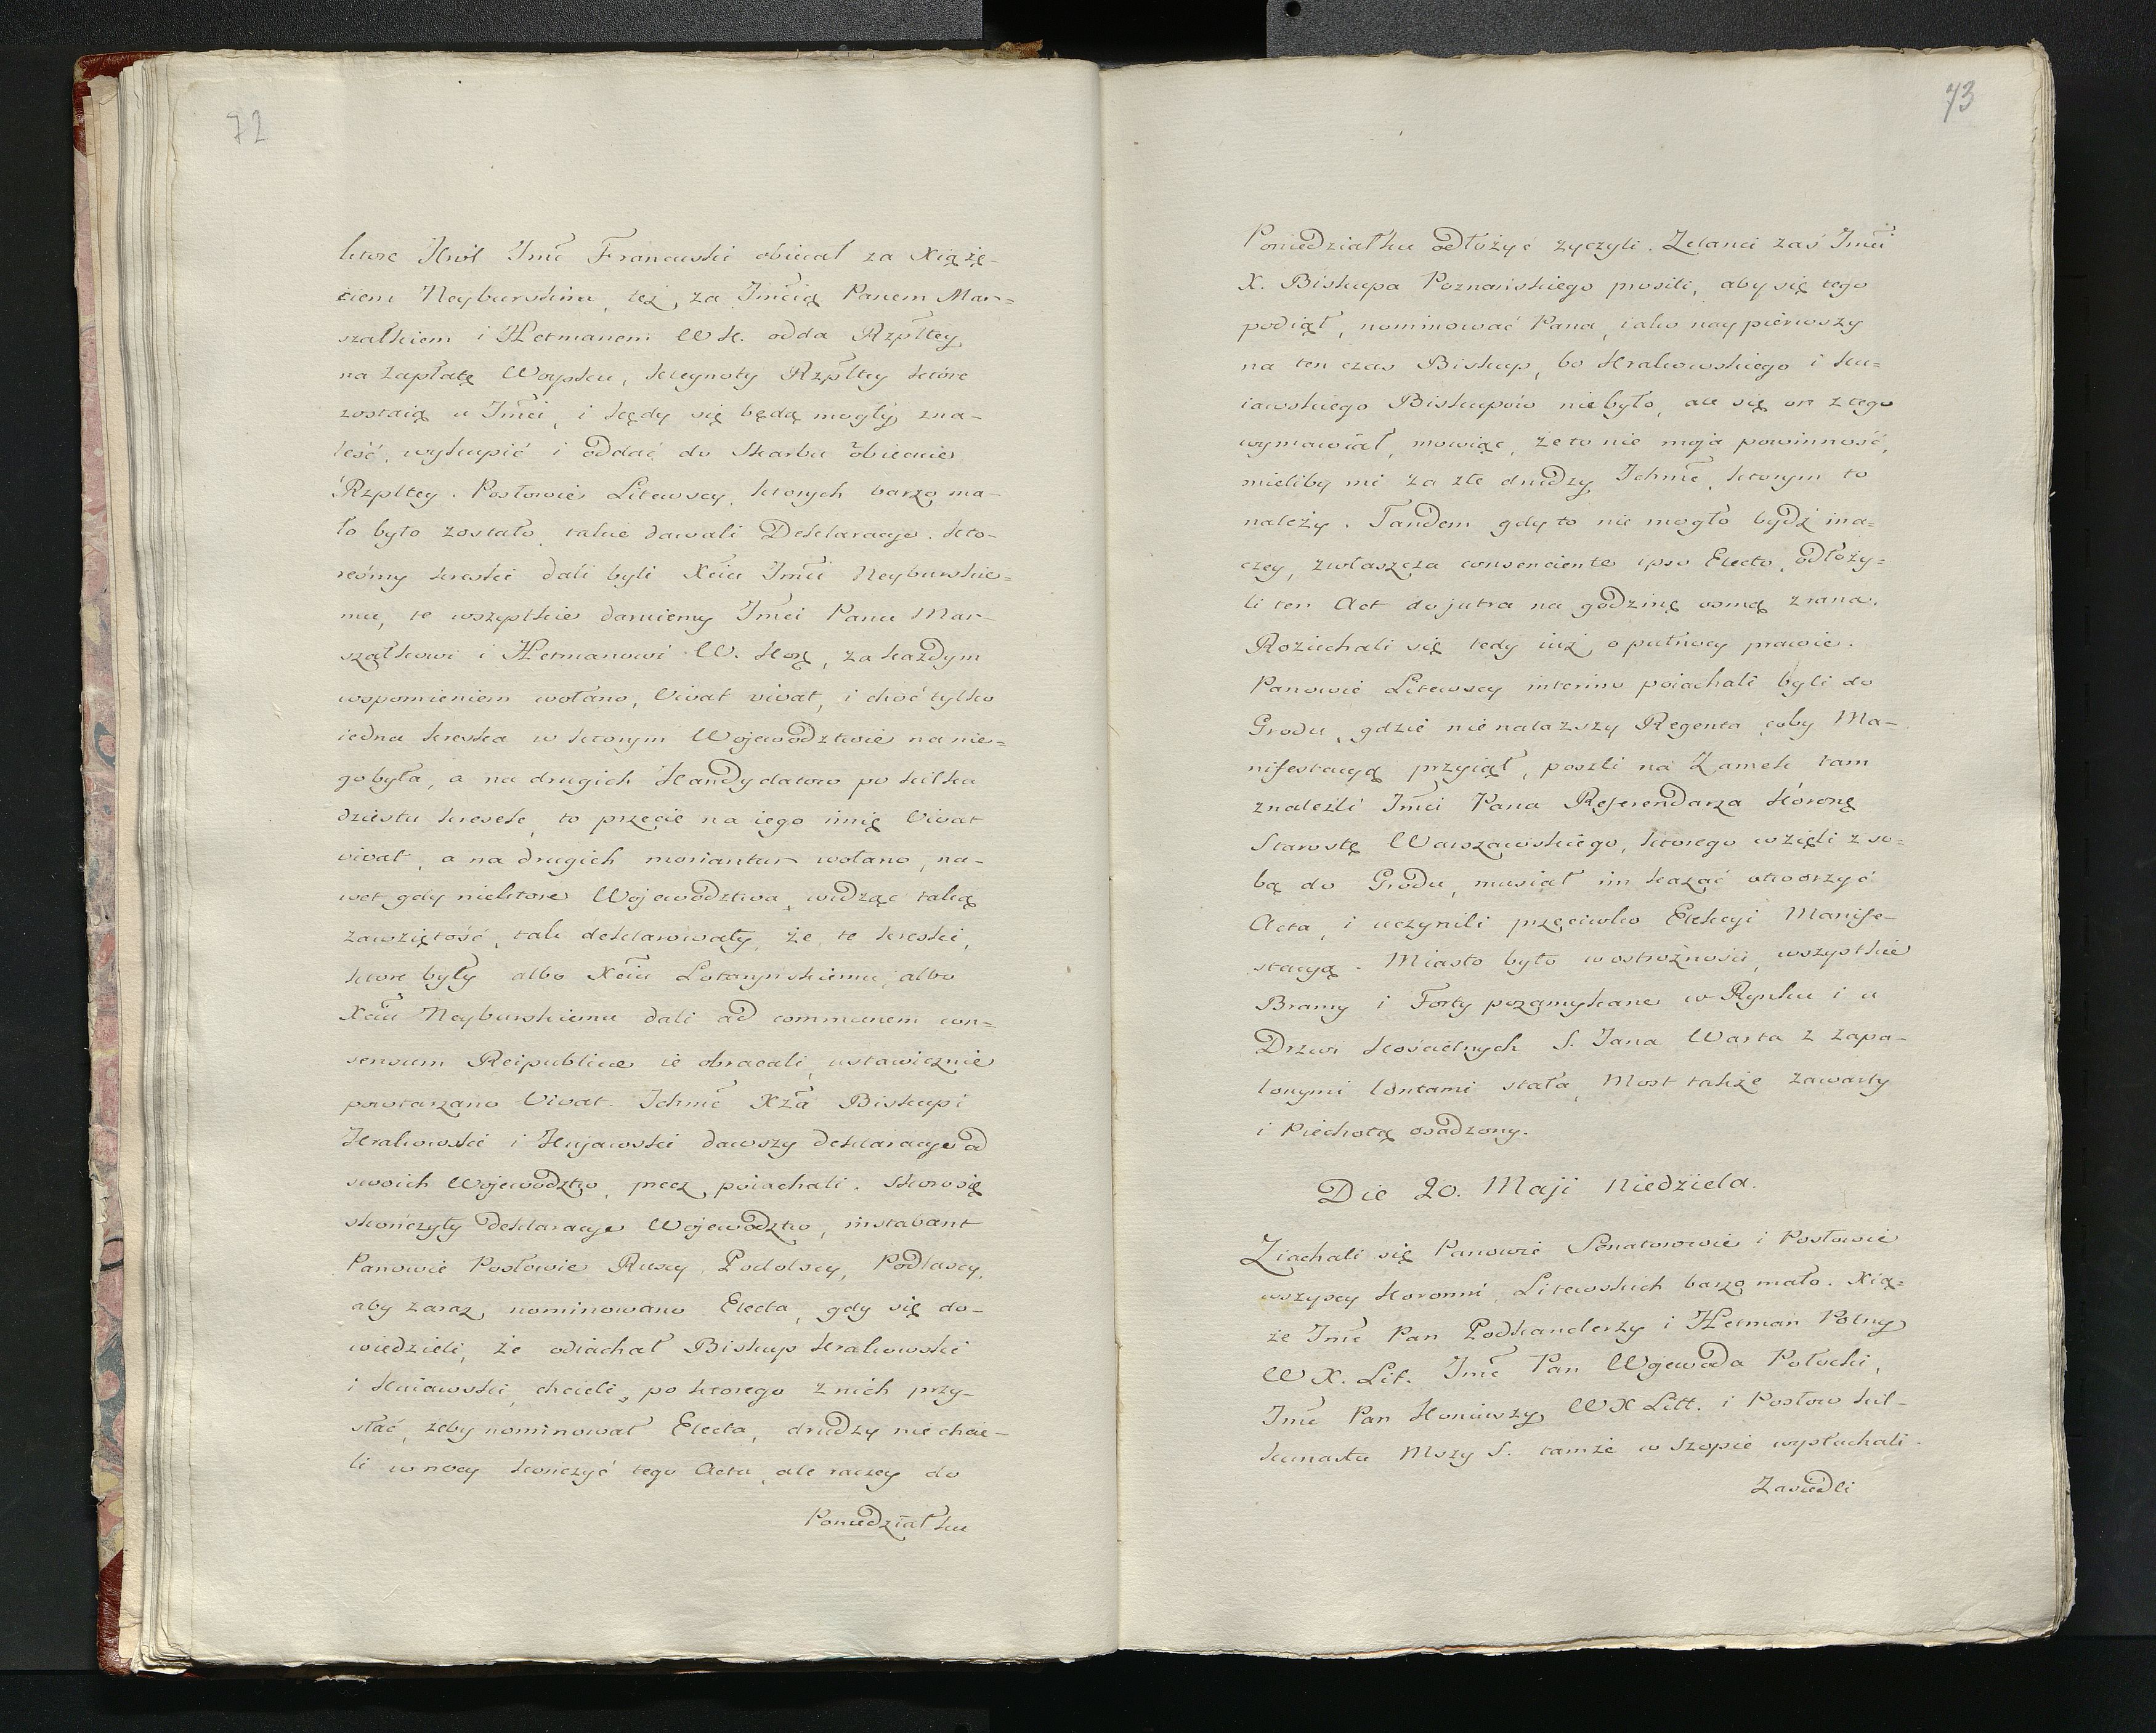 72
ktore Krol Jmć Francuski obiecał za Xiążę-
ciem Neyburskim, też, za Jmcią Panem Mar=
szałkiem i Hetmanem W K. odda Rzpltey
na zapłatę Woysku, kleynoty Rzpltey które
zostaią u Jmci, i kędy się będą mogły zna-
leść, wykupić i oddać do Skarbu obiecuie
Rzpltey. Posłowie Litewscy, ktorych barzo ma-
ło było zostało, takie dawali Deklaracye. Kto-
reśmy kreski dali byli Xciu Jmci Neyburskie=
mu, te wszystkie daruiemy Jmci Panu Mar-
szałkowi i Hetmanowi W. Kor, za każdym
wspomieniem wołano, Vivat vivat, i choć tylko
iedna kreska w ktorym Wojewodztwie na nie=
go była, a na drugich Kandydatow po kilku
dziestu kresek, to przecie na iego imię Vivat
vivat, a na drugich moriantur wołano, na-
wet gdy niektore Wojewodztwa, widząc taką
zawziętość, tak deklarowały, że te kreski,
ktore były albo Xciu Lotaryńskiemu, albo
Xciu Neyburskiemu dali ad communem con=
sensum Reipublicæ ie obracali, ustawicznie
powtarzano Vivat. Ichmć Xża Biskupi
Krakowski i Kujawski dawszy deklaracye od
swoich Wojewodztw, precz poiachali. Skoro się
skończyły deklaracye Wojewodztw, instabant
Panowie Posłowie Ruscy, Podolscy, Podlascy,
aby zaraz, nominowano Electa, gdy się do-
wiedzieli, że odiachał Biskup Krakowski
i Kuiawski, chcieli, po ktorego z nich przy-
słać, żeby nominował Electa, drudzy nie chcie-
li w nocy kończyć tego Actu, ale raczey do
Poniedziałku
73
Poniedziałku odłożyć życzyli. Zelanci zaś Jmci
X. Biskupa Poznańskiego prosili, aby się tego
podiął, nominować Pana, iako naypierwszy
na ten czas Biskup, bo Krakowskiego i Ku=
iawskiego Biskupów nie było, ale się on z tego
wymawiał, mowiąc, że to nie moja powinność,
mieliby mi za złe drudzy Ichmć, ktorym to
należy. Tandem gdy to nie mogło bydź ina=
czey, zwłaszcza consenciente ipso Electo, odłoży=
li ten Act do jutra na godzinę osmą z rana.
Roziechali się tedy iuż o pułnocy prawie.
Panowie Litewscy interim poiachali byli do
Grodu, gdzie nie nalazszy Regenta coby Ma-
nifestacyą przyiął, poszli na Zamek, tam
znaleźli Jmci Pana Referendarza Koronę
Starostę Warszawskiego, ktorego wzięli z so=
bą do Grodu, musiał im kazać otworzyć
Acta, i uczynili przeciwko Elekcyi Manife-
stacyą. Miasto było w ostrożności, wszystkie
Bramy i Forty pozamykane w Rynku i u
Drzwi Kościelnych S. Jana Warta z zapa-
lonymi lontami stała, Most także zawarty
i Piechotą osadzony.
Die 20. Maji Niedziela.
Ziachali się Panowie Senatorowie i Posłowie
wszyscy Koronni, Litewskich barzo mało. Xią=
że Jmć Pan Podkanclerzy i Hetman Polny
W X. Lit. Jmć Pan Wojewoda Połocki,
Jmć Pan Koniuszy W X Litt. i Posłow kil-
kunastu Mszy S. tamże w Szopie wysłuchali.
Zasiedli